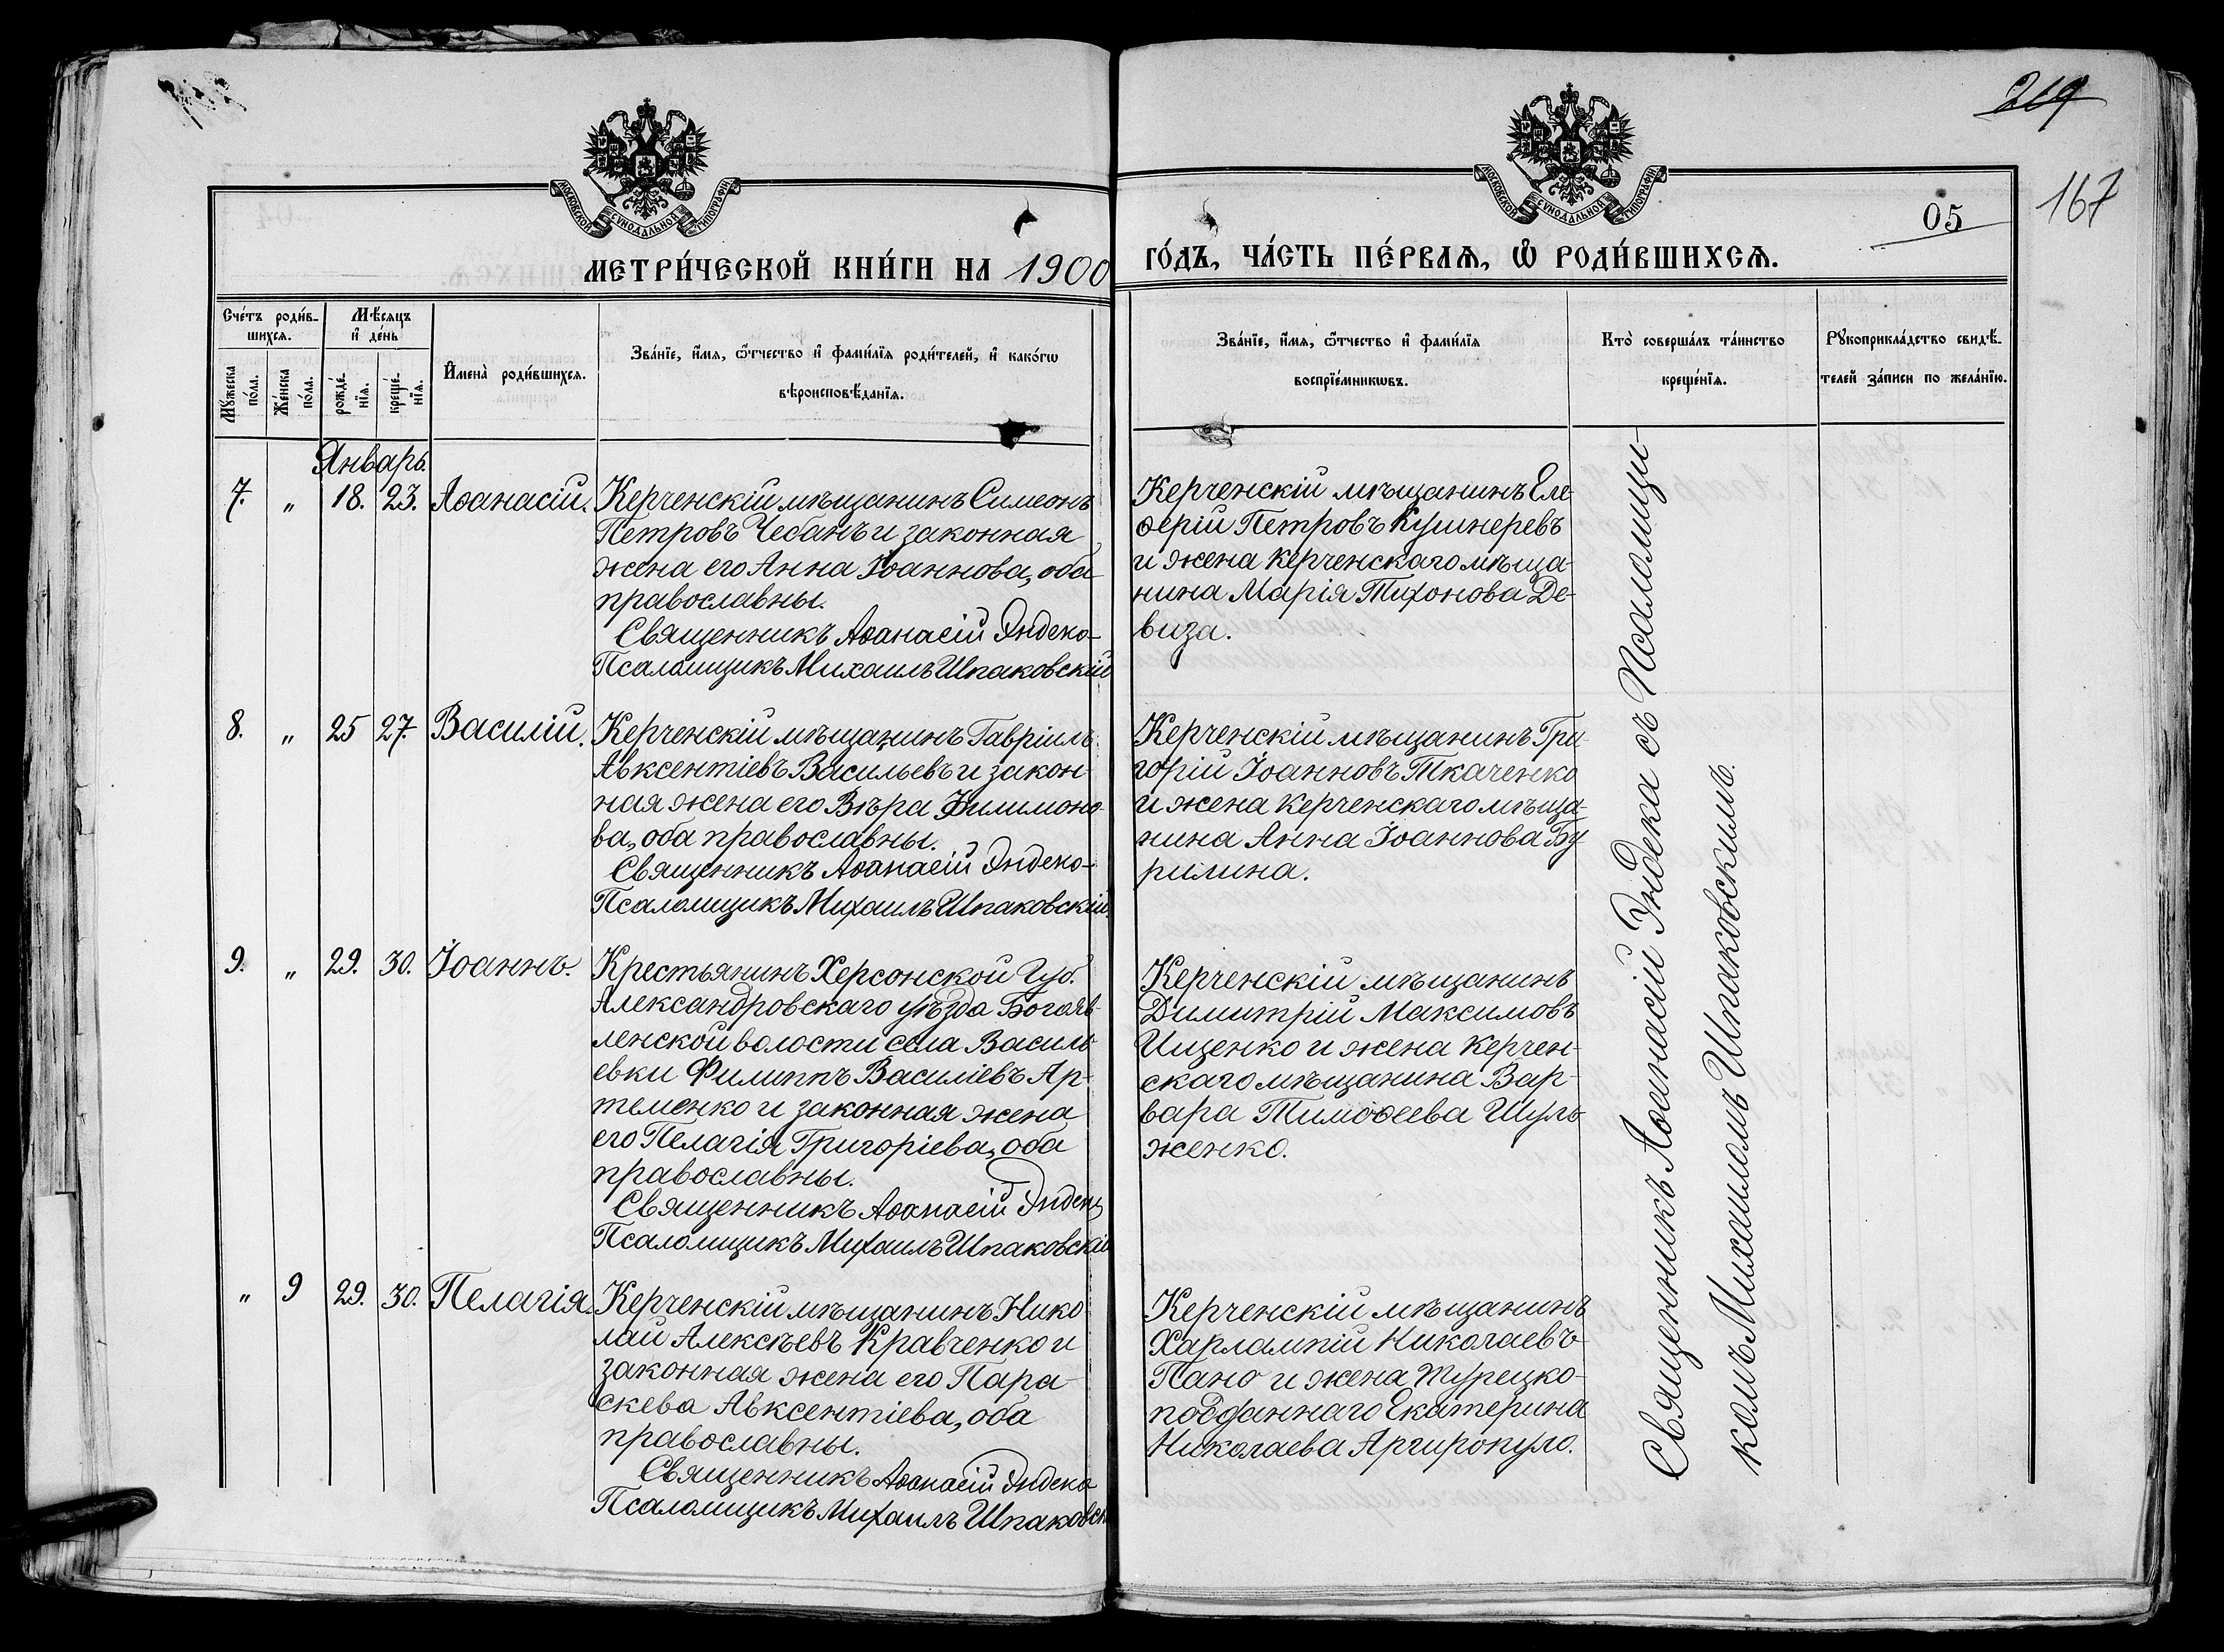 219
167
05
МОСКОВСКОЙ СѴНОДАЛЬНОЙ ТИПОГРАФІИ
МОСКОВСКОЙ СѴНОДАЛЬНОЙ ТИПОГРАФІИ
МЕТРИ́ЧЕСКОЙ КНИ́ГИ НА 1900
ГО́ДЪ, ЧА́СТЬ ПЕ́РВАѦ, Ѽ РОДИ́ВШИХСѦ.
Сче́тъ роди́в-
шихсѧ.
Мꙋ́жеска
по́ла.
Же́нска
по́ла.
Мѣ́сѧцъ
и҆ де́нь
рожде́-
нїѧ.
креще́-
нїѧ.
И҆мена̀ роди́вшихсѧ.
Зва́нїе, и҆́мѧ, ѻ҆́тчество и҆ фами́лїѧ роди́телей, и҆ како́гѡ
вѣроисповѣ́данїѧ.
Зва́нїе, и҆́мѧ, ѻ҆́тчество и҆ фами́лїѧ
воспрїе́мникѡвъ.
Кто̀ соверша́лъ та́инство
креще́нїѧ.
Рꙋкоприкла́дство свидѣ́-
телей за́писи по жела́нїю.
Январь.
7. " 18. 23. Аѳанасій.
Керченскій мѣщанинъ Симеонъ
Петровъ Чебанъ и законная
жена его Анна Іоаннова, оба
православны.
Священникъ Аѳанасій Эндека
Псаломщикъ Михаилъ Шпаковскій
Керченскій мѣщанинъ Еле-
ѳерій Петровъ Кушнеревъ
и жена керченскаго мѣща-
нина Марія Тихонова Де-
виза.
8. " 25 27. Василій.
Керченскій мѣщанинъ Гавріилъ
Авксентіевъ Васильевъ и закон-
ная жена его Вѣра Филимоно-
ва, оба православны.
Священникъ Аѳанасій Эндека
Псаломщикъ Михаилъ Шпаковскій.
Керченскій мѣщанинъ Гри-
горій Іоанновъ Ткаченко
и жена керченскаго мѣща-
нина Анна Іоаннова Бу-
рилина.
9. " 29. 30. Іоаннъ.
Крестьянинъ Херсонской Губ.
Александровскаго уѣзда Богояв-
ленской волости села Василь-
евки Филиппъ Василіевъ Ар-
теменко и законная жена
его Пелагія Григоріева, оба
православны.
Священникъ Аѳанасій Эндека
Псаломщикъ Михаилъ Шпаковскій
Керченскій мѣщанинъ
Димитрій Максимовъ
Ищенко и жена керчен-
скаго мѣщанина Вар-
вара Тимоѳеева Шуль-
женко.
" 9 29. 30. Пелагія.
Керченскій мѣщанинъ Нико-
лай Алексѣевъ Кравченко и
законная жена его Пара-
скева Авксентіева, оба
православны.
Священникъ Аѳанасій Эндека
Псаломщикъ Михаилъ Шпаковск
Керченскій мѣщанинъ
Харлампій Николаевъ
Пано и жена турецко-
подданнаго Екатерина
Николаева Аргиропуло.
Священникъ Аѳанасій Эндека съ Псаломщи-
комъ Михаиломъ Шпаковскимъ.